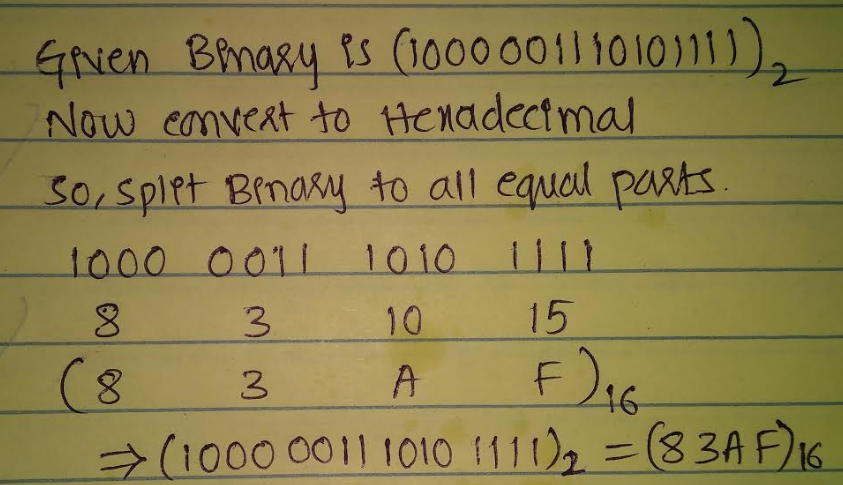 Given Binary is (1000001110101111)2
Now convert to Hexadecimal
So, split Binary to all equal parts.
1000 0011 1010 1111
8 3 10 15
(8 3 A F)16
⇒ (1000 0011 1010 1111)2 = (83AF)16